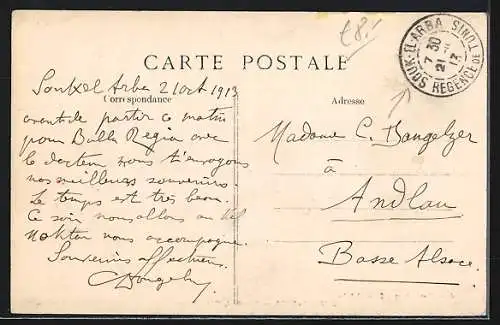 €8.-
SOUK-EL-ARBA
RÉGENCE DE TUNIS
7 30
21
13
CARTE POSTALE
Correspondance
Adresse
Souk el Arba 2 1913
avant de partir ce matin
pour Bulla Regia avec
le docteur nous t'envoyons
nos meilleurs souvenirs.
Le temps est très beau.
Ce soir nous allons au
nous accompagne.
Souvenirs affectueux.
Madame C.
à
Andlau
Basse Alsace